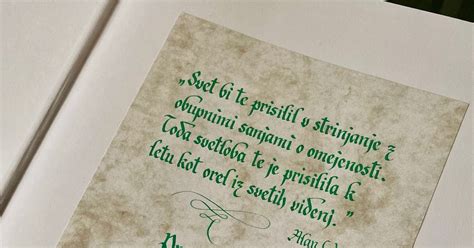 „Svet bi te prisilil v strinjanje z
obupnimi sanjami o omejenosti.
Toda svetloba te je prisilila k
letu kot orel iz svetih videnj.”
Alan